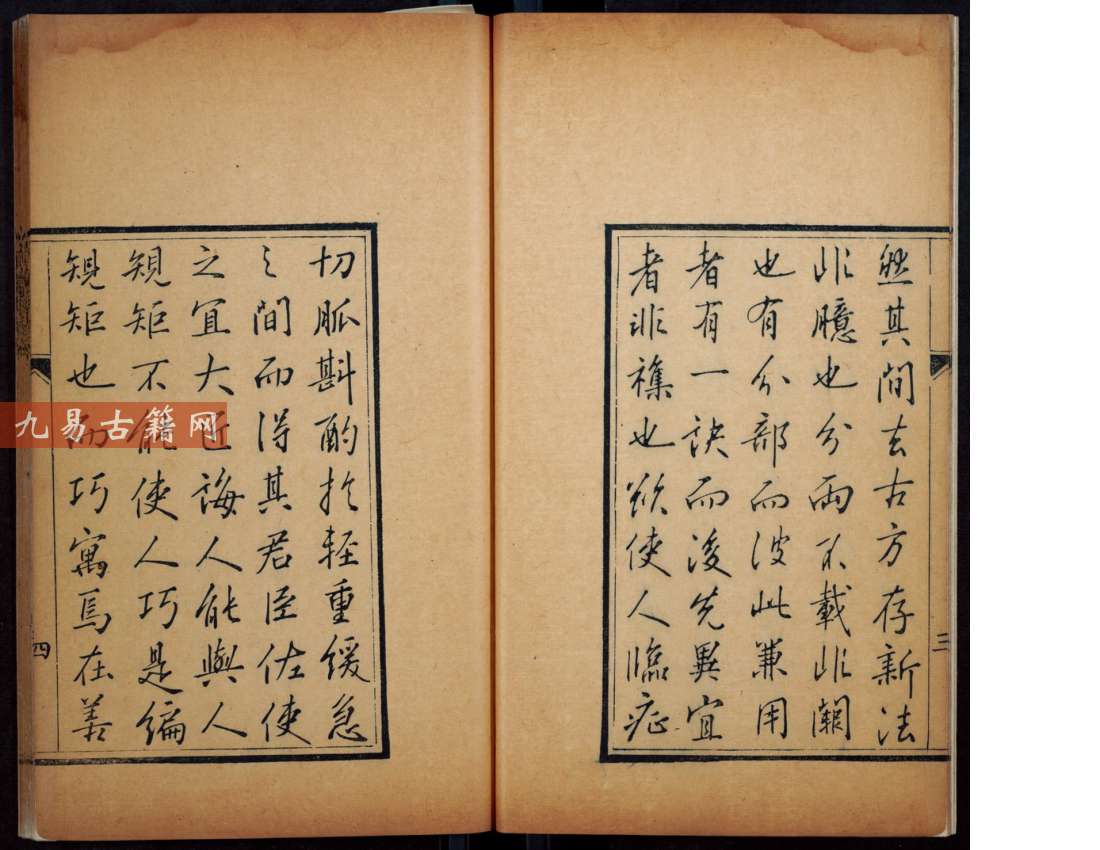 然其间去古方存新法
非臆也分两不载非闕
也有分部而彼此兼用
者有一訣而後先異宜
者非襍也欲使人臨症
三
切脈斟酌於輕重緩急
之間而得其君臣佐使
之宜大匠誨人能與人
規矩不能使人巧是編
規矩也而巧寓焉在善
四
九易古籍网